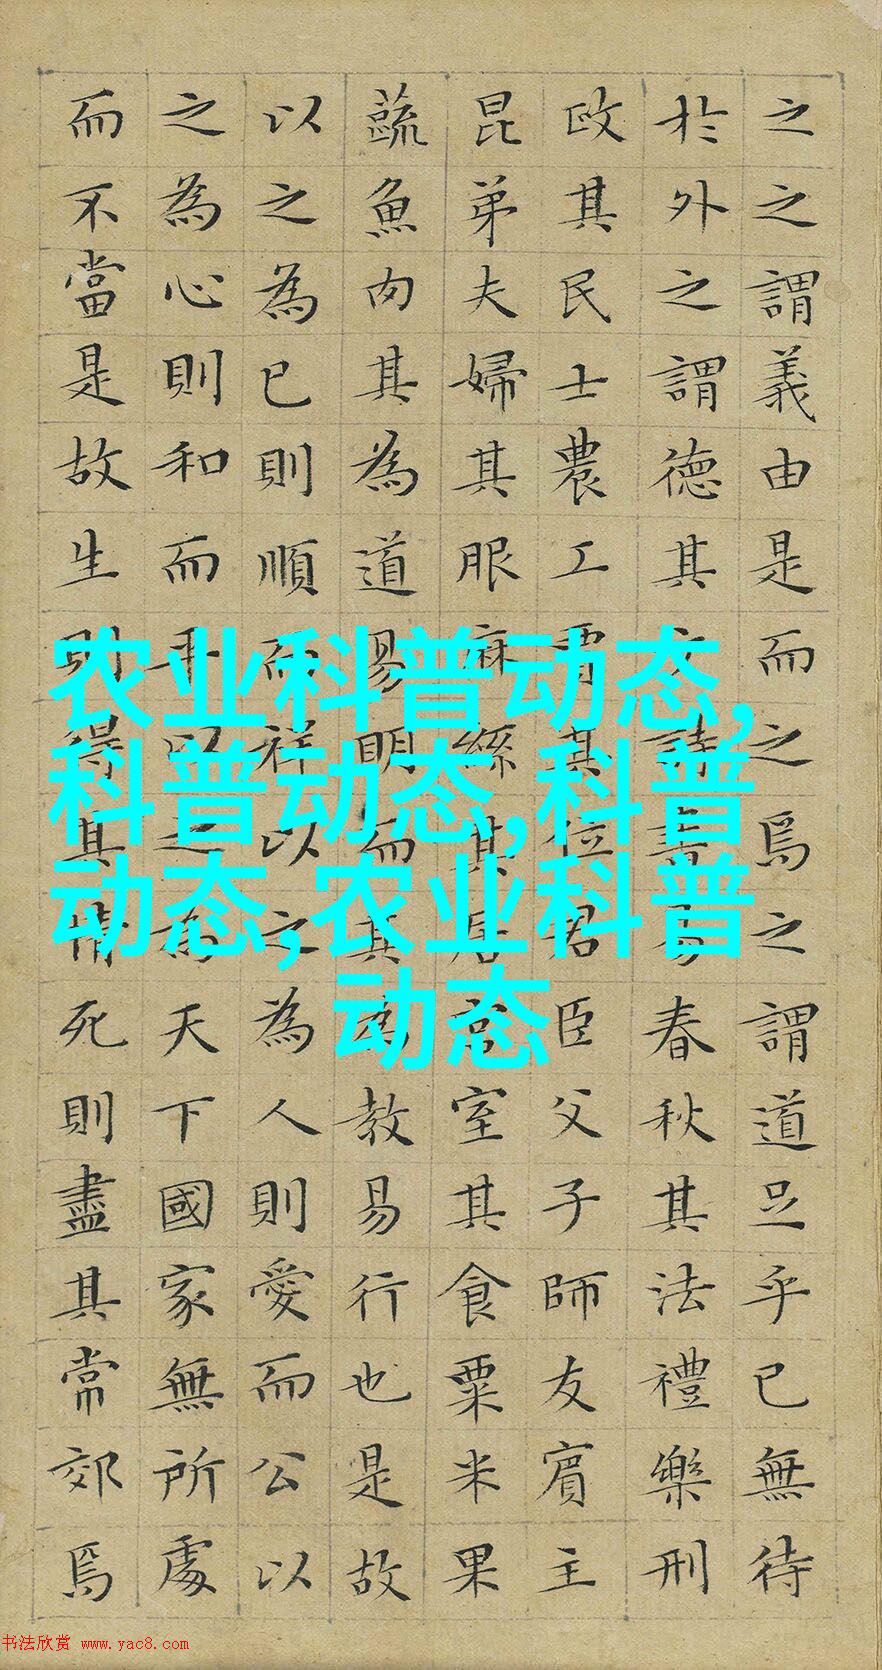 之之謂義由是而之焉之謂道足乎已無待
於外之謂德其文詩書易春秋其法禮樂刑
政其民士農工賈其位君臣父子師友賓主
昆弟夫婦其服麻絲其居宮室其食粟米果
蔬魚肉其為道易明而其為教易行也是故
以之為已則順而祥以之為人則愛而公以
之為心則和而平以之為天下國家無所處
而不當是故生則得其情死則盡其常郊焉
农业科普动态,
科普动态,科普
动态,农业科普
动态
书法欣赏 www.yac8.com